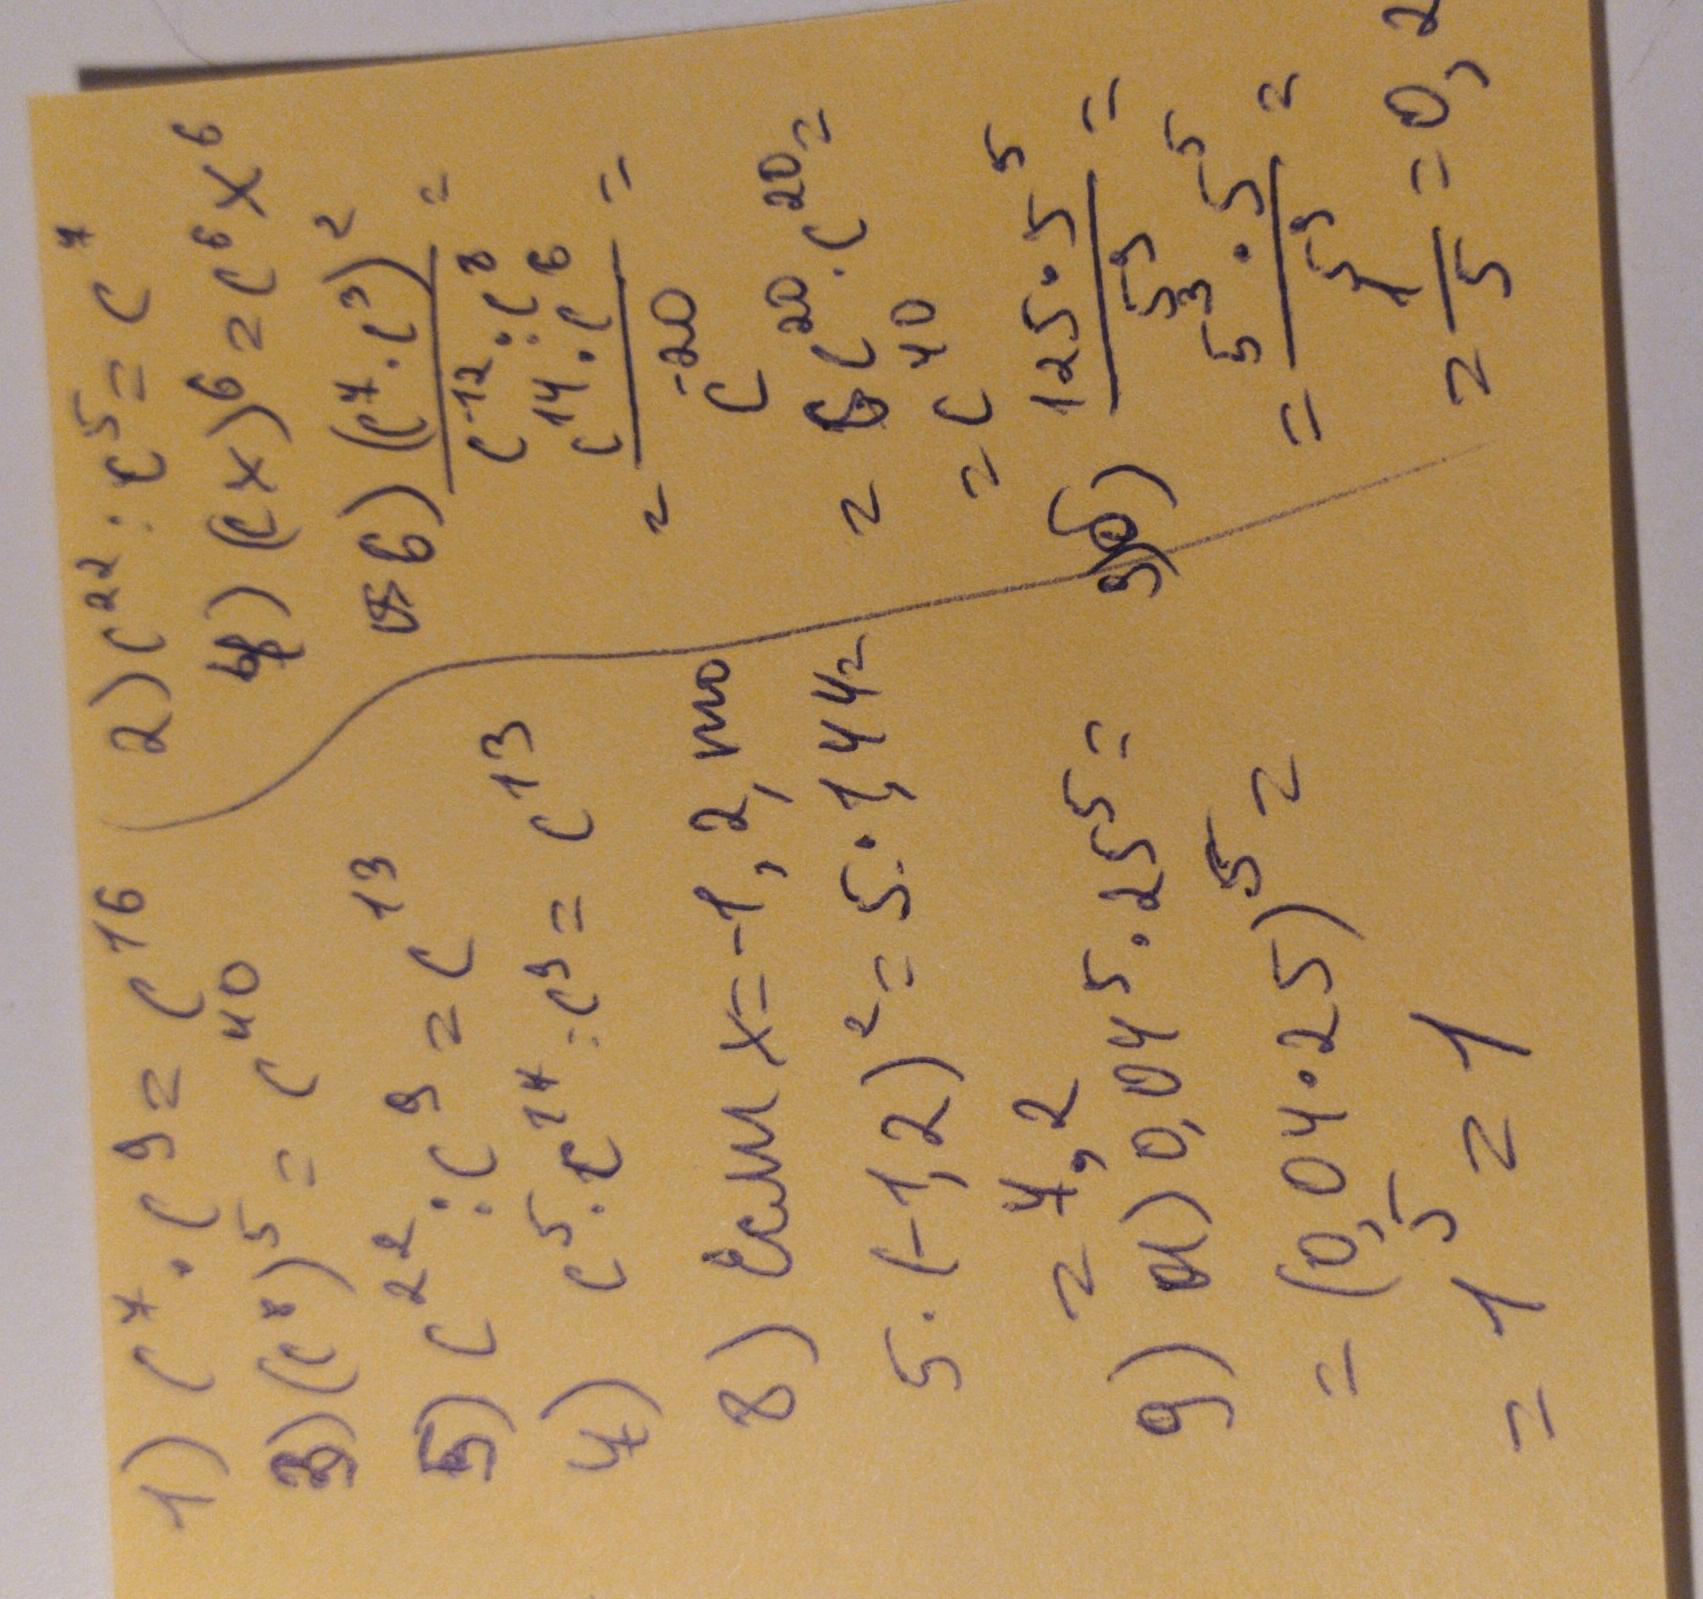 1) c⁷ · c⁹ = c¹⁶
3) (c⁸)⁵ = c⁴⁰
5) c²² : c⁹ = c¹³
7) c⁵ · c¹⁷ : c⁹ = c¹³
8) Если x = -1,2, то
5 · (-1,2)² = 5 · 1,44 =
= 7,2
9) а) 0,04⁵ · 25⁵ =
= (0,04 · 25)⁵ =
= 1⁵ = 1
2) c²² : c⁵ = c⁷
4) (cx)⁶ = c⁶x⁶
6) (c⁷ · c³)² =
c⁻¹² : c⁸
= c¹⁴ · c⁶ =
c⁻²⁰
= c²⁰ · c²⁰ =
= c⁴⁰
9) б) 125 · 5⁵ =
5⁹
= 5³ · 5⁵ =
5⁹
= 1/5 = 0,2